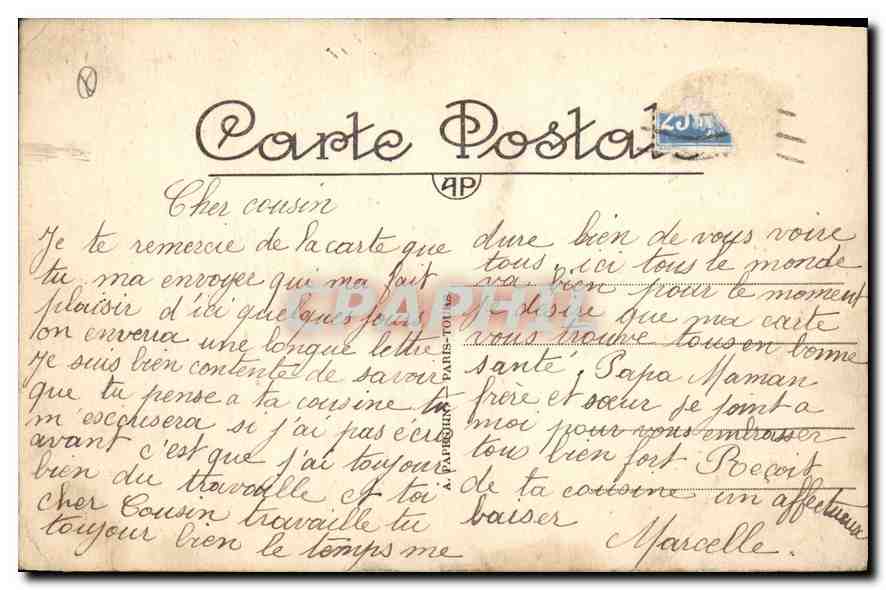 Carte Postale
25
AP
Cher cousin
Je te remercie de la carte que
tu ma envoyer qui ma fait
plaisir d'ici quelques jours
on envera une longue lettre
Je suis bien contente de savoir
que tu pense a ta cousine tu
m'escusera si j'ai pas écri
avant c'est que j'ai toujour
bien du travaille et toi
cher Cousin travaille tu
toujour bien le temps me
dure bien de vous voire
tous, ici tous le monde
va bien pour le moment
Je désire que ma carte
vous trouve tous en bonne
santé, Papa Maman
frère et sœur se joint a
moi pour vous embrasser
tou bien fort Reçoit
de ta cousine un affectueux
baiser
Marcelle.
PARIS-TOURS
CPAPHIL